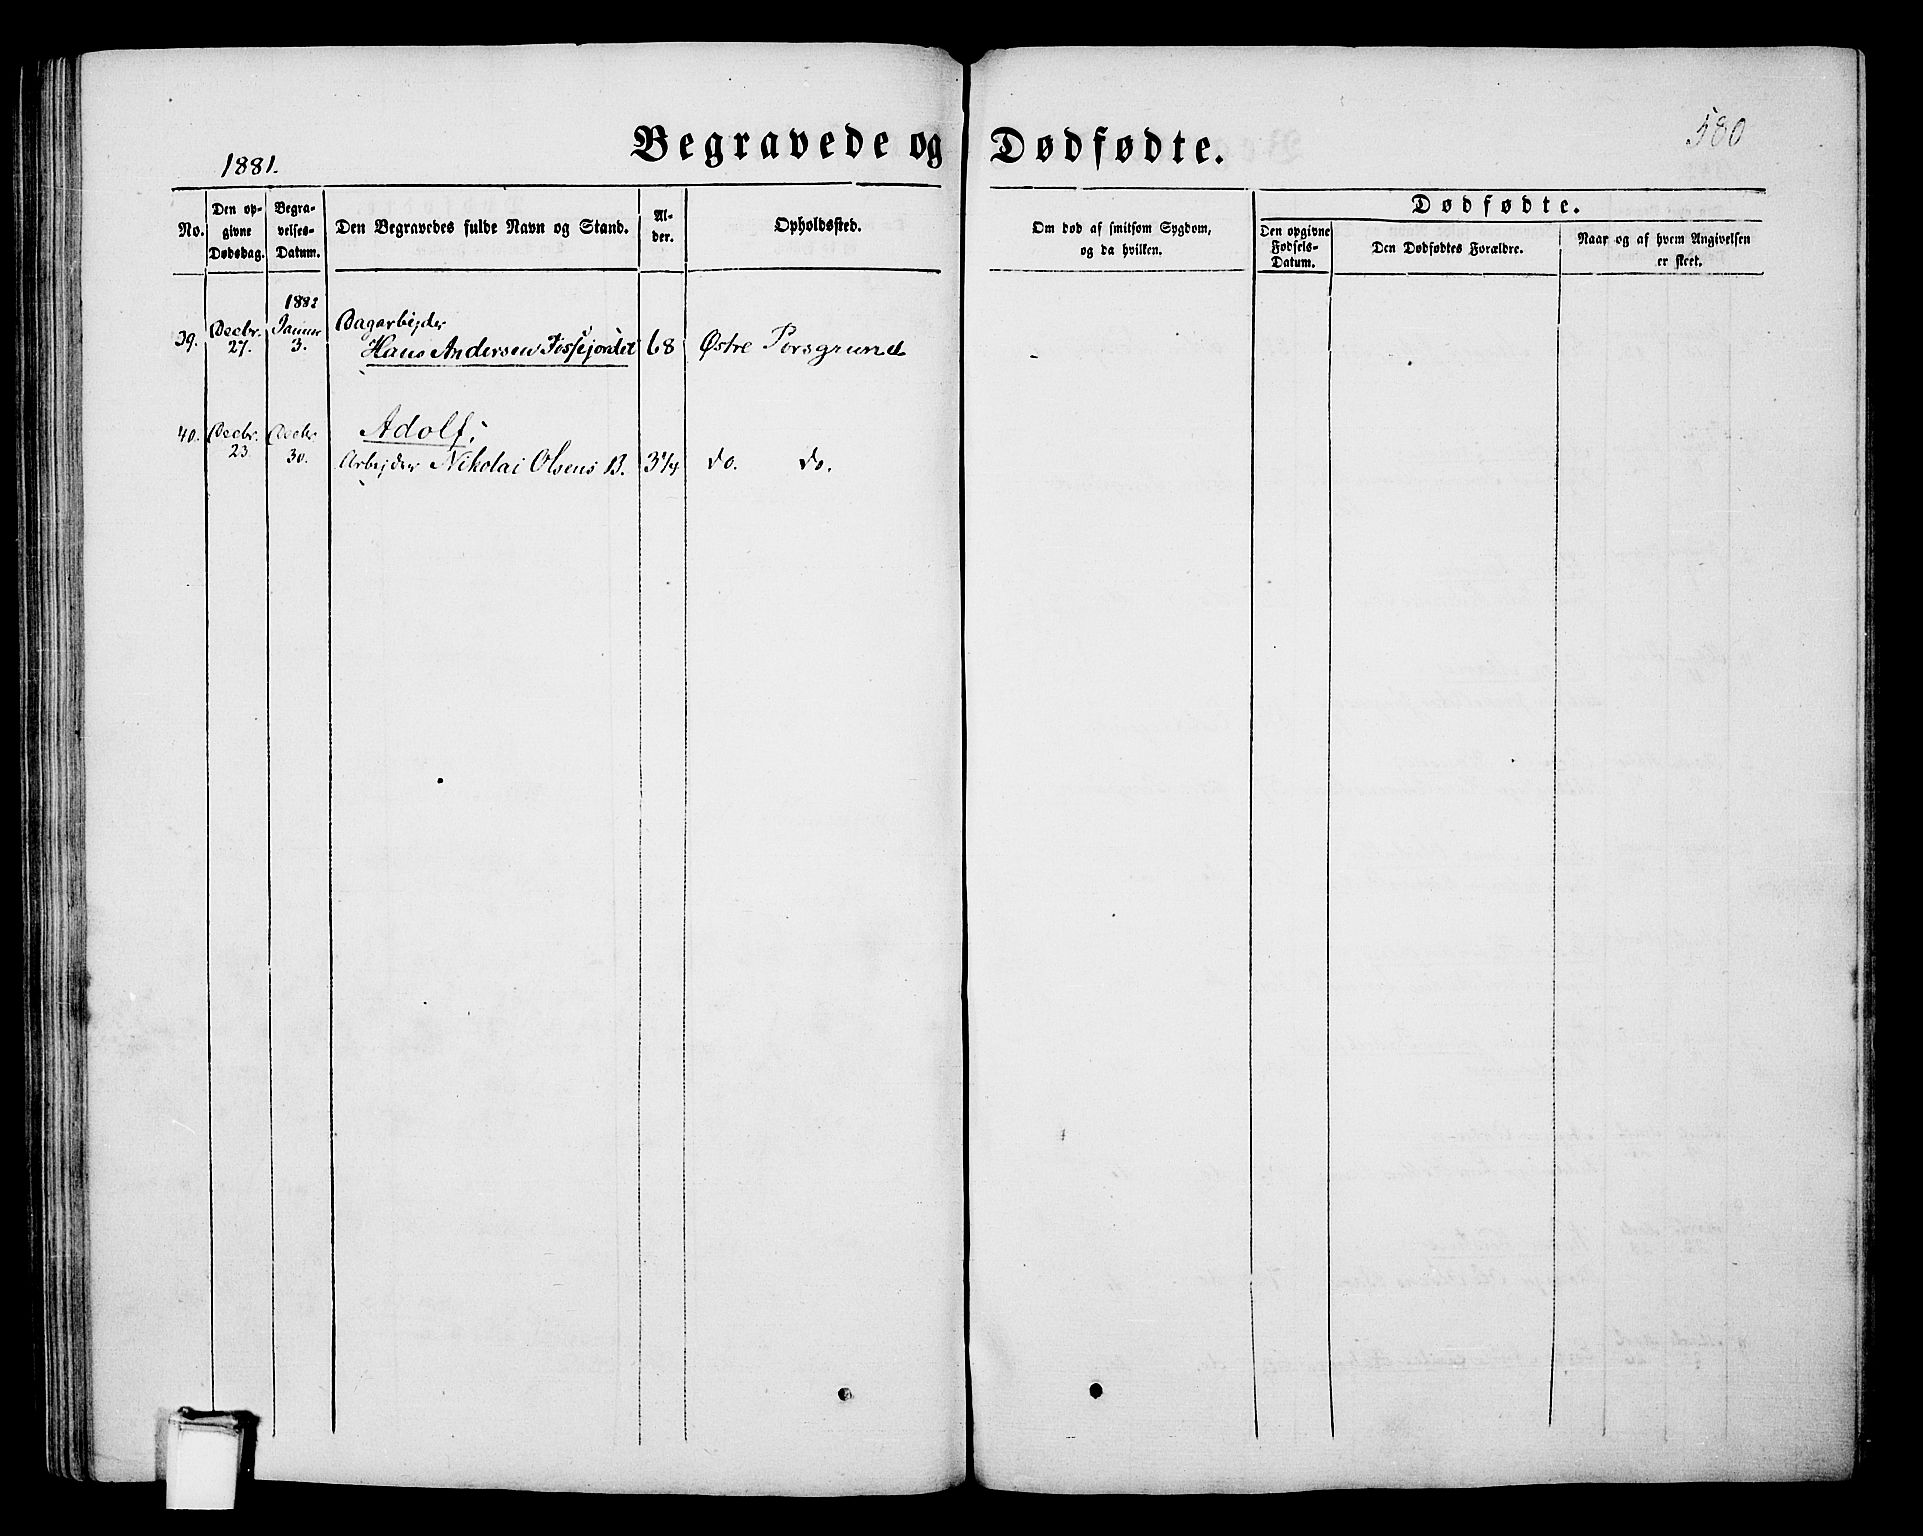 1881.
Begravede og Dødfødte.
580
No.
Den op-
givne
Dødsdag.
Begra-
velses-
Datum.
Den Begravedes fulde Navn og Stand.
Al-
der.
Opholdssted.
Om død af smitsom Sygdom,
og da hvilken.
Dødfødte.
Den opgivne
Fødsels-
Datum.
Den Dødfødtes Forældre.
Naar og af hvem Angivelsen
er skeet.
39.
Decbr.
27.
1882
Januar
3.
Dagarbejder
Hans Andersen
68
Østre Porsgrund
40.
Decbr.
23.
Decbr.
30.
Adolf;
Arbejder Nikolai Olsens B.
3 1/4
do. do.